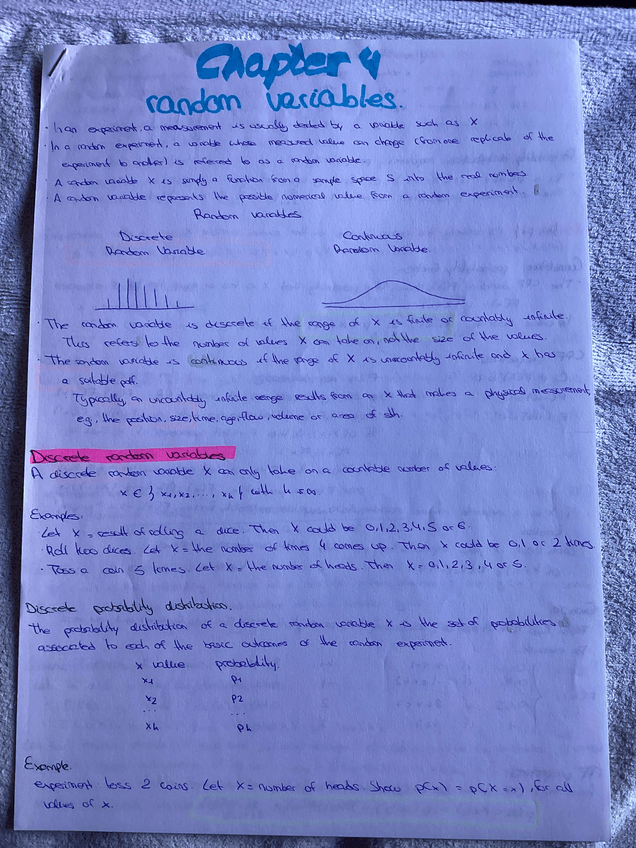 Chapter 4
random variables.
· In an experiment, a measurement is usually denoted by a variable such as X
· In a random experiment, a variable whose measured value can change (from one replicate of the
experiment to another) is referred to as a random variable.
A random variable X is simply a function from a sample space S into the real numbers
A random variable represents the possible numerical value from a random experiment.
Random variables
Discrete Continuous
Random Variable Random Variable.
· The random variable is discrete if the range of X is finite or countably infinite.
This refers to the number of values X can take on, not the size of the values.
· The random variable is continuous if the range of X is uncountably infinite and X has
a suitable pdf.
Typically an uncountably infinite range results from an X that makes a physical measurement,
eg, the position, size, time, age, flow, volume or area of sth.
Discrete random variables
A discrete random variable X can only take on a countable number of values:
x ∈ { x1, x2, ..., xk } with k ≤ ∞.
Examples:
Let X = result of rolling a dice. Then X could be 0,1,2,3,4,5 or 6.
· Roll two dices. Let X = the number of times 4 comes up. Then X could be 0,1 or 2 times.
· Toss a coin 5 times. Let X = the number of heads. Then X = 0,1,2,3,4 or 5.
Discrete probability distribution.
The probability distribution of a discrete random variable X is the set of probabilities
associated to each of the basic outcomes of the random experiment.
x value probability.
x1 p1
x2 p2
... ...
xk pk
Example.
experiment toss 2 coins. Let X = number of heads show p(x) = p(X = x), for all
values of x.